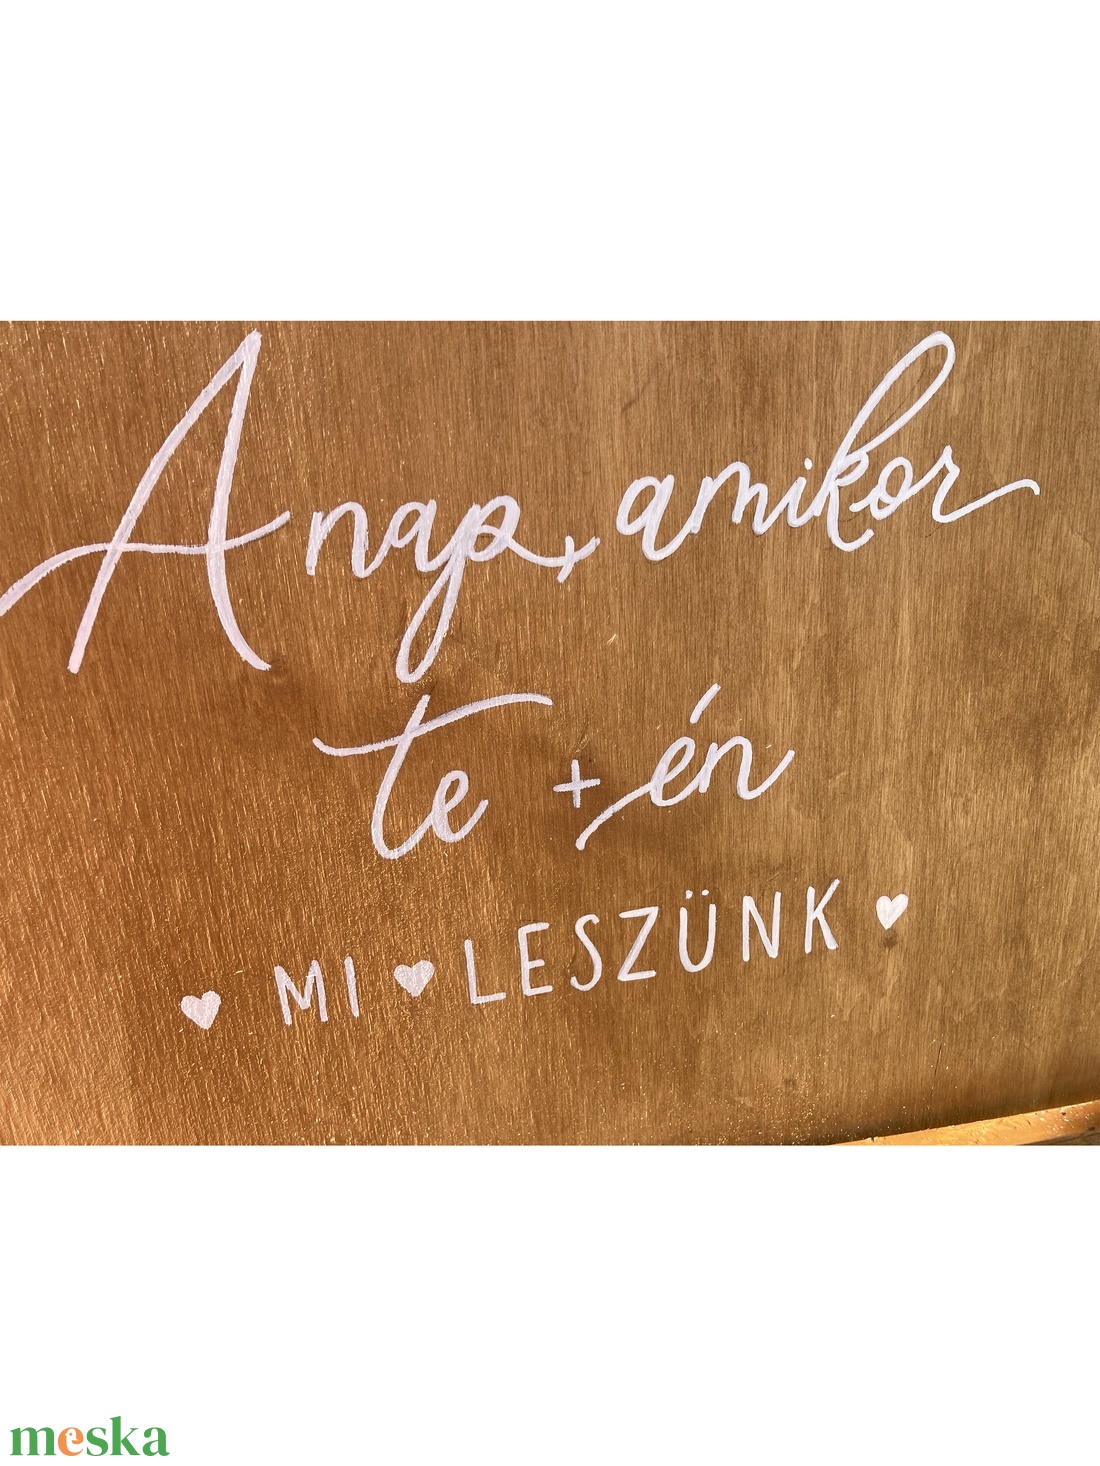 A nap, amikor
te + én
♥ MI ♥ LESZÜNK ♥
meska